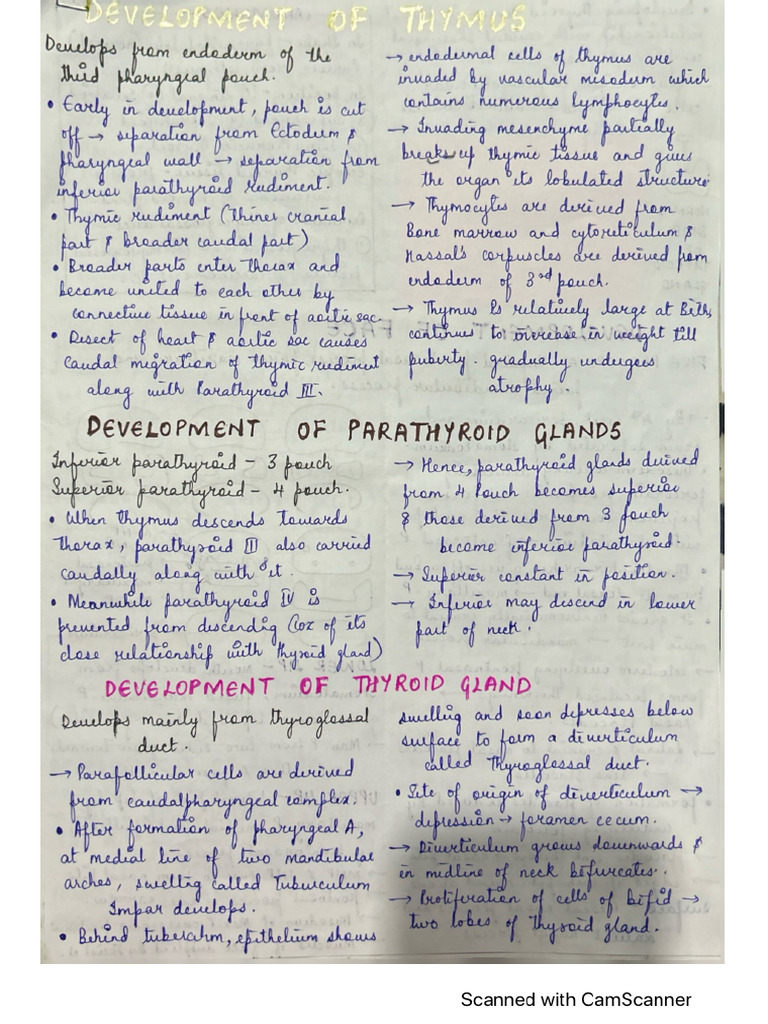 DEVELOPMENT OF THYMUS
Develops from endoderm of the
third pharyngeal pouch.
• Early in development, pouch is cut
off → separation from Ectoderm &
pharyngeal wall → separation from
inferior parathyroid rudiment.
• Thymic rudiment (thiner cranial
part & broader caudal part)
• Broader parts enter thorax and
become united to each other by
connective tissue in front of aortic sac.
• Desect of heart & aortic sac causes
caudal migration of thymic rudiment
along with Parathyroid III.
→ endodermal cells of thymus are
invaded by vascular mesoderm which
contains numerous lymphocytes.
→ Invading mesenchyme partially
breaks up thymic tissue and gives
the organ its lobulated structure
→ Thymocytes are derived from
Bone marrow and cytoreticulum &
Hassal's corpuscles are derived from
endoderm of 3rd pouch.
→ Thymus is relatively large at Birth,
continues to increase in weight till
puberty. gradually undergoes
atrophy.
DEVELOPMENT OF PARATHYROID GLANDS
Inferior parathyroid - 3 pouch
Superior parathyroid - 4 pouch.
• When thymus descends towards
thorax, parathyroid III also carried
caudally along with it.
• Meanwhile parathyroid IV is
prevented from descending (coz of its
close relationship with thyroid gland)
→ Hence, parathyroid glands derived
from 4 pouch becomes superior
& those derived from 3 pouch
become inferior parathyroid.
→ Superior constant in position.
→ Inferior may descend in lower
part of neck.
DEVELOPMENT OF THYROID GLAND
Develops mainly from thyroglossal
duct.
→ Parafollicular cells are derived
from caudalpharyngeal complex.
• After formation of pharyngeal A,
at medial line of two mandibular
arches, swelling called Tuburculum
Impar develops.
• Behind tuberculum, epithelium shows
swelling and soon depresses below
surface to form a diverticulum
called Thyroglossal duct.
• Site of origin of diverticulum →
depression → foramen cecum.
→ Diverticulum grows downwards &
in midline of neck bifurcates.
→ Proliferation of cells of bifid →
two lobes of thyroid gland.
Scanned with CamScanner